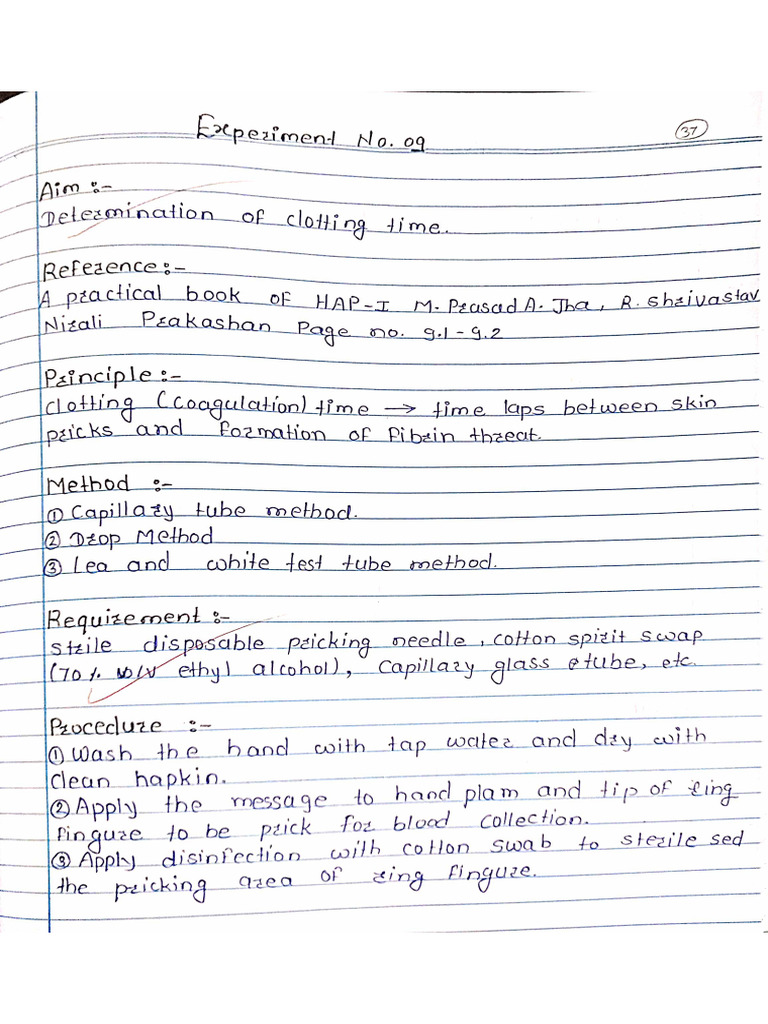 Experiment No. 09
37
Aim :-
Determination of clotting time.
Reference:-
A practical book of HAP-I M. Prasad A. Jha, R. Shrivastav
Nirali Prakashan Page no. 9.1 - 9.2
Principle:-
Clotting (Coagulation) time → time laps between skin
pricks and formation of fibrin threat.
Method :-
① Capillary tube method.
② Drop Method
③ Lea and white test tube method.
Requirement :-
Strile disposable pricking needle, cotton spirit swap
(70 % v/v ethyl alcohol), Capillary glass tube, etc.
Procedure :-
① Wash the hand with tap water and dry with
clean hapkin.
② Apply the message to hand plam and tip of ring
fingure to be prick for blood collection.
③ Apply disinfection with cotton swab to sterile sed
the pricking area of ring fingure.